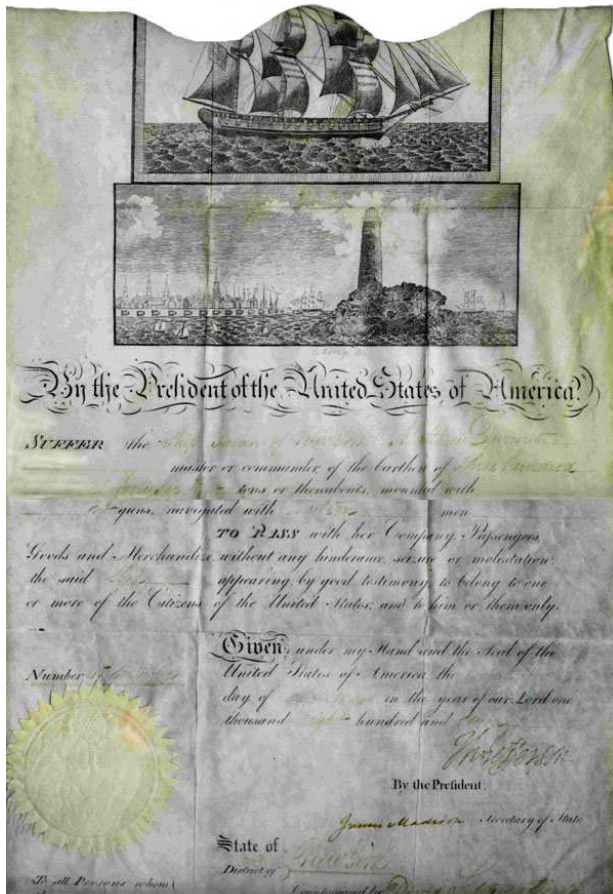 By the President of the United States of America.
SUFFER the Ship of New York
master or commander, of the burthen of Three hundred
tons or thereabouts, mounted with
guns, navigated with men
TO PASS with her Company, Passengers,
Goods and Merchandize, without any hinderance, seizure or molestation:
the said Ship appearing by good testimony to belong to one
or more of the Citizens of the United States; and to him or them only.
Given under my Hand and the Seal of the
Number
United States of America the
day of in the year of our Lord one
thousand eight hundred and
Th Jefferson
By the President.
James Madison Secretary of State
State of New York
District of
To all Persons whom
Countersigned by David